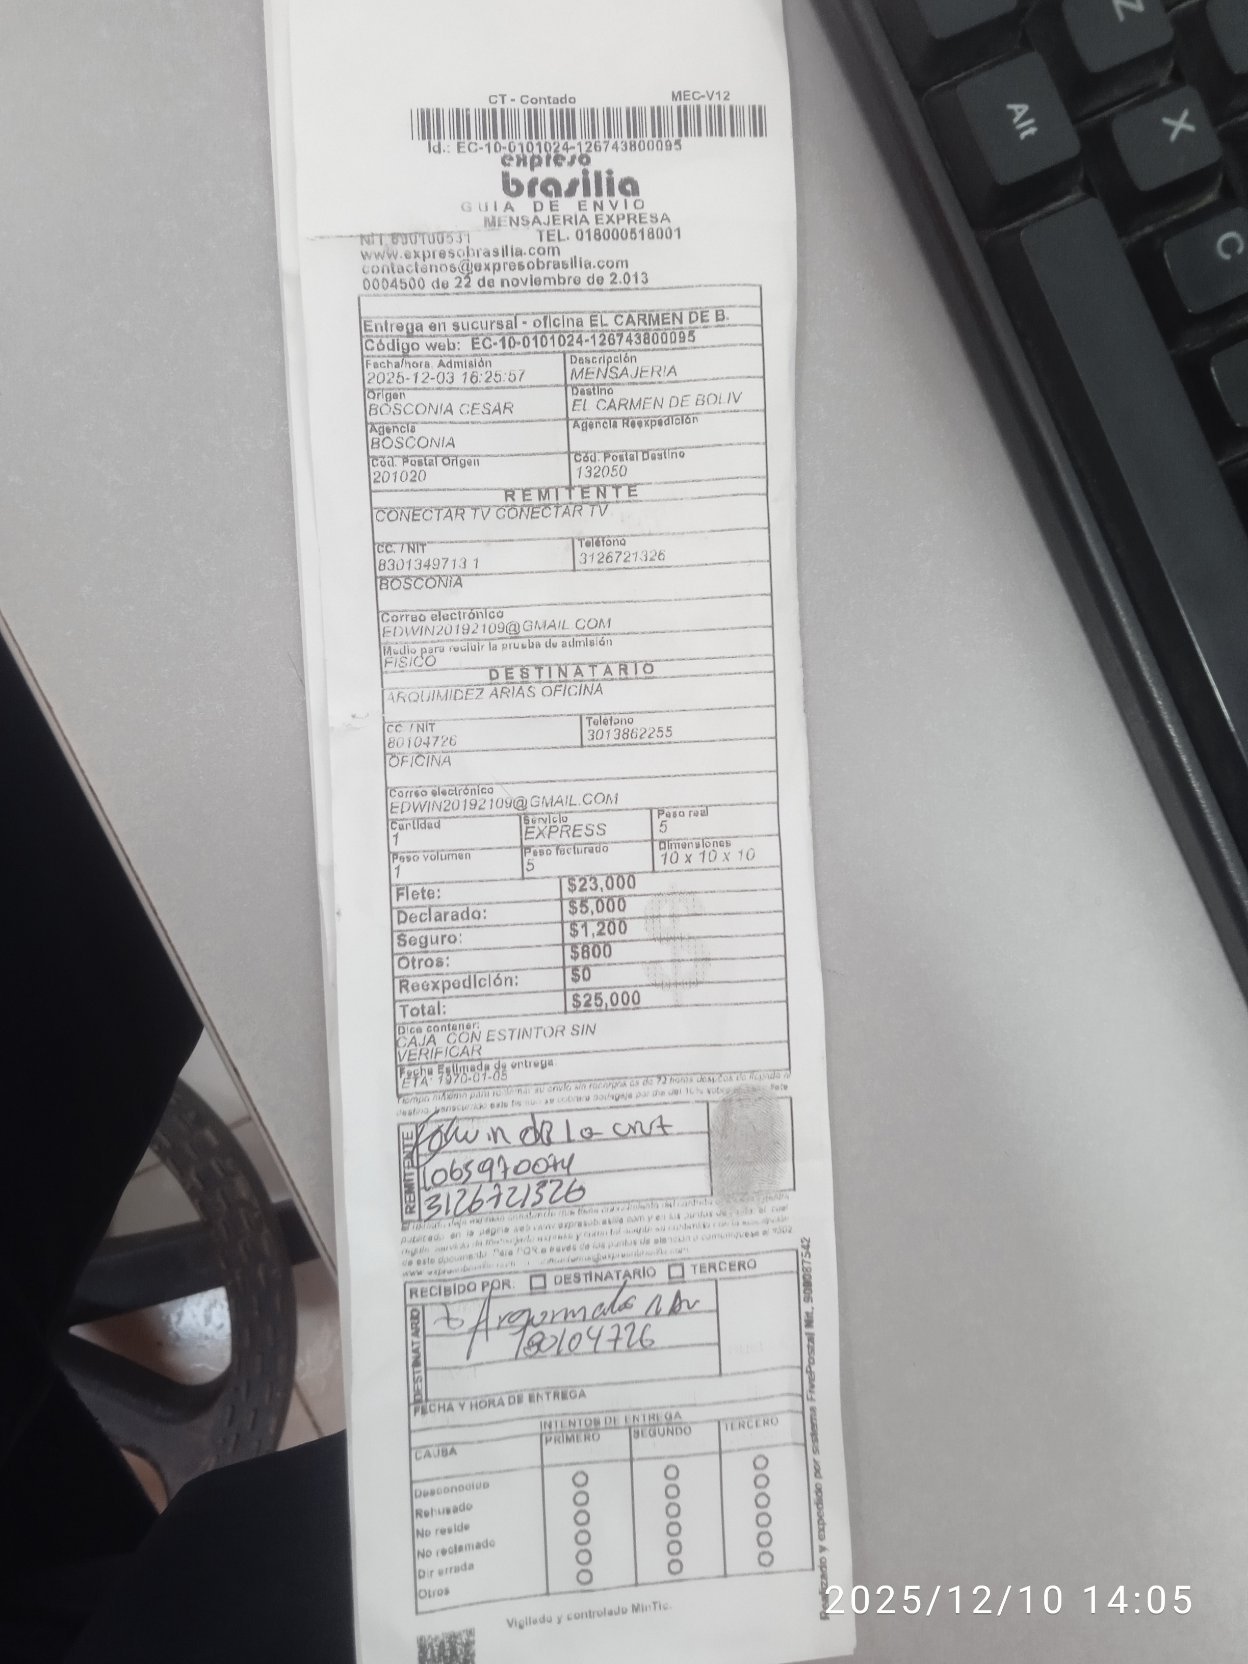 CT - Contado MEC-V12
Id.: EC-10-0101024-126743800095
expreso
brasilia
GUIA DE ENVIO
MENSAJERIA EXPRESA
NIT. 890100531 TEL. 018000518001
www.expresobrasilia.com
contactenos@expresobrasilia.com
0004500 de 22 de noviembre de 2.013
Entrega en sucursal - oficina EL CARMEN DE B.
Código web: EC-10-0101024-126743800095
Fecha/hora. Admisión Descripción
2025-12-03 16:25:57 MENSAJERIA
Origen Destino
BOSCONIA CESAR EL CARMEN DE BOLIV
Agencia Agencia Reexpedición
BOSCONIA
Cód. Postal Origen Cód. Postal Destino
201020 132050
REMITENTE
CONECTAR TV CONECTAR TV
CC. / NIT Teléfono
8301349713 1 3126721326
BOSCONIA
Correo electrónico
EDWIN20192109@GMAIL.COM
Medio para recibir la prueba de admisión
FISICO
DESTINATARIO
ARQUIMIDEZ ARIAS OFICINA
CC / NIT Teléfono
80104726 3013862255
OFICINA
Correo electrónico
EDWIN20192109@GMAIL.COM
Cantidad Servicio Peso real
1 EXPRESS 5
Peso volumen Peso facturado Dimensiones
1 5 10 x 10 x 10
Flete: $23,000
Declarado: $5,000
Seguro: $1,200
Otros: $800
Reexpedición: $0
Total: $25,000
Dice contener:
CAJA CON ESTINTOR SIN
VERIFICAR
Fecha Estimada de entrega
ETA: 1970-01-05
REMITENTE
Edwin de la cruz
1065970074
3126721326
RECIBIDO POR: DESTINATARIO TERCERO
DESTINATARIO
80104726
FECHA Y HORA DE ENTREGA
INTENTOS DE ENTREGA
CAUSA PRIMERO SEGUNDO TERCERO
Desconocido
Rehusado
No reside
No reclamado
Dir errada
Otros
Vigilado y controlado MinTic.
Realizado y expedido por sistema FivePostal Nit. 900087542
2025/12/10 14:05
Alt
Z
X
C